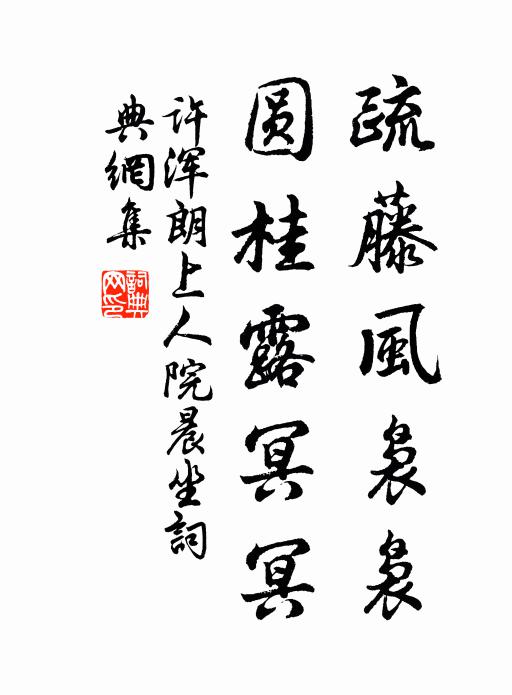 疏藤風裊裊
圓桂露冥冥
許渾朗上人院晨坐詞
典網集
詞典网印